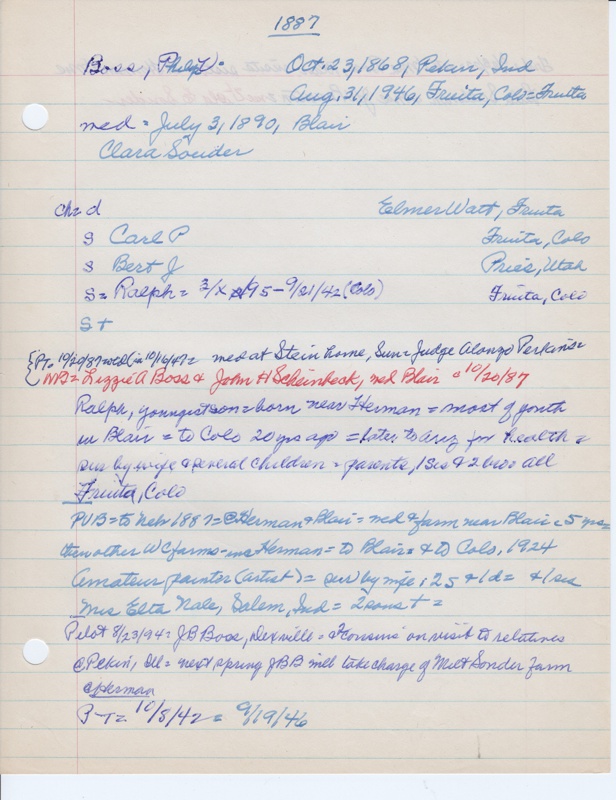 1887
Boss, Philip V = Oct. 23, 1868, Pekin, Ind
Aug. 31, 1946, Fruita, Colo = Fruita
med = July 3, 1890, Blair
Clara Souder
Ch = d Elmer Watt, Fruita
s Carl P Fruita, Colo
s Bert J Price, Utah
s = Ralph = 95 - 9/21/42 (Colo) Fruita, Colo
s +
PT. 10/20/87 = wed (in 10/16/47) = med at Stein home, Sun = Judge Alonzo Perkins =
NB = Lizzie A Boss & John H Scheinbeck, med Blair c 10/20/87
Ralph, youngest son = born near Herman = most of youth
in Blair = to Colo 20 yrs ago = later to Ariz for health =
sur by wife & several children = parents, 1 sis & 2 bros all
Fruita, Colo
PVB = to Neb 1887 = @ Herman & Blair = med & farm near Blair c 5 yrs =
then other WC farms - inc Herman = to Blair = & to Colo, 1924
Amateur painter (artist) = sur by wife, 2 s & 1 d = & 1 sis
Mrs Etta Nale, Salem, Ind = 2 sons + =
Pilot 8/23/94 = JB Boss, Dexville = & cousins on visit to relatives
@ Pekin, Ill = next spring JBB will take charge of Milt Sonder farm
@ Herman
PT = 10/8/42 = 9/19/46